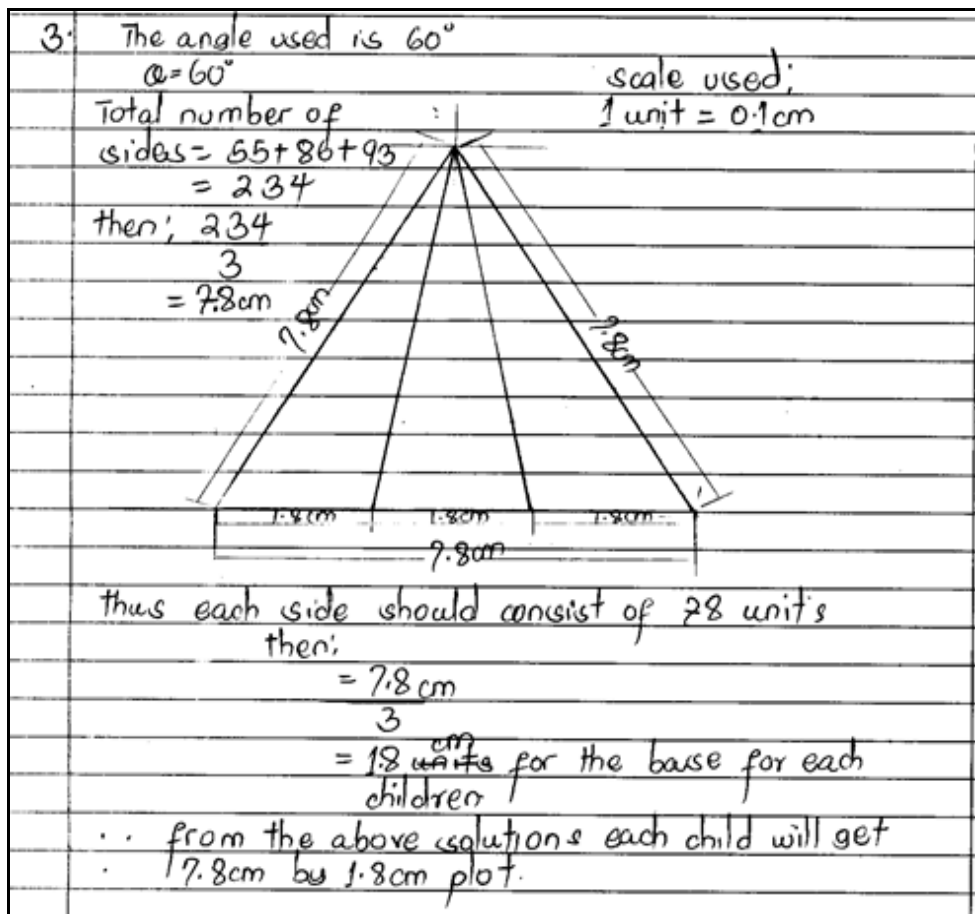 3. The angle used is 60°
Q=60°
scale used;
Total number of
1 unit = 0.1cm
sides= 55+86+93
= 234
then; 234
3
= 7.8cm
7.8cm
7.8cm
1.8cm 1.8cm 1.8cm
7.8cm
thus each side should consist of 78 unit's
then;
= 7.8 cm
3
= 1.8 cm units for the base for each
children
∴ from the above solutions each child will get
7.8cm by 1.8cm plot.